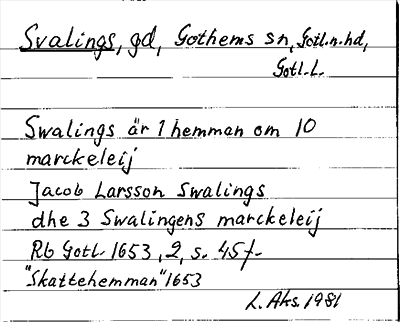 Svalings, gd, Gothems sn, Gotl.n.hd,
Gotl.L.
Swalings är 1 hemman om 10
marckeleij
Jacob Larsson Swalings
dhe 3 Swalingens marckeleij
Rb Gotl. 1653, 2, s. 45f.
"Skattehemman" 1653
L. Aks. 1981